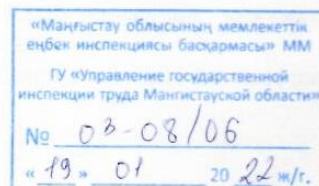 «Маңғыстау облысының мемлекеттік
еңбек инспекциясы басқармасы» ММ
ГУ «Управление государственной
инспекции труда Мангистауской области»
№ 03-08/06
« 19 » 01 20 22 ж/г.